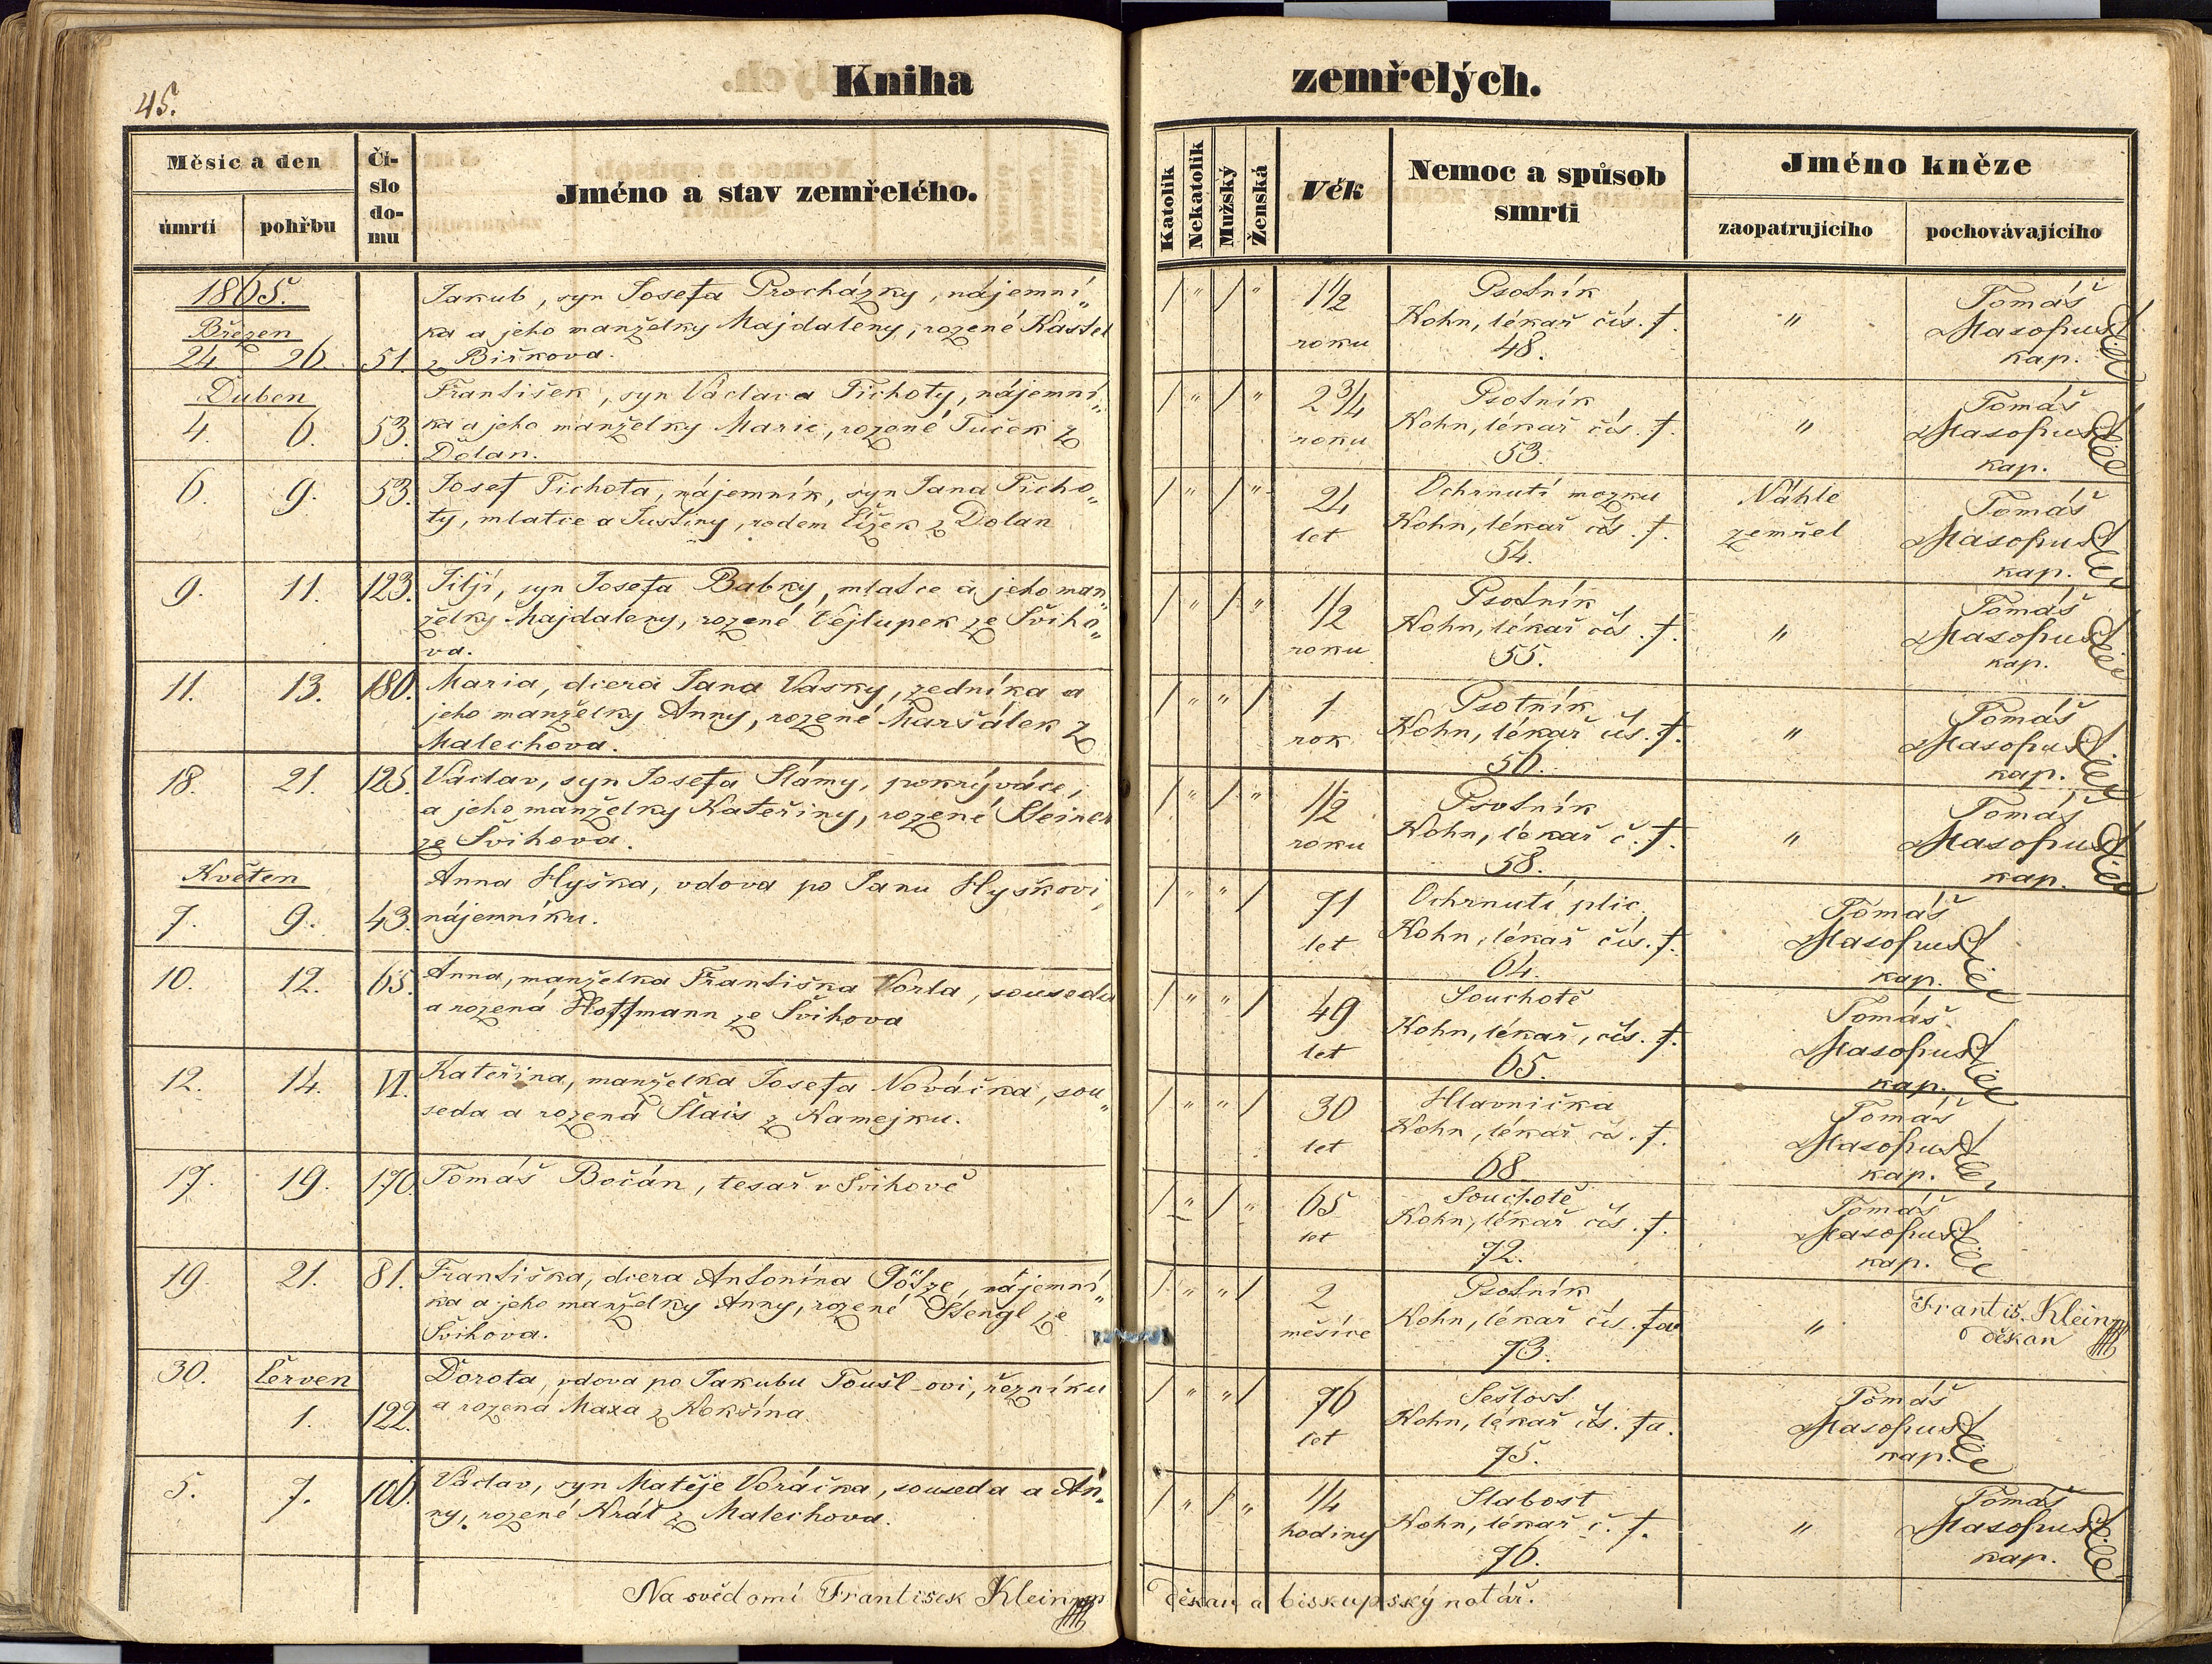 45.
Kniha
zemřelých.
Měsíc a den
úmrtí
pohřbu
Čí-
slo
do-
mu
Jméno a stav zemřelého.
Katolík
Nekatolík
Mužský
Ženská
Věk
Nemoc a spůsob
smrti
Jméno kněze
zaopatrujícího
pochovávajícího
1865.
Březen
24. 26. 51.
Jakub, syn Josefa Procházky, nájemní„
ka a jeho manželky Majdaleny, rozené Kastel
z Biřkova.
/ „ / „
1 1/2
roku
Psotník
Kohn, lékař čís. f.
48.
„
Tomáš
Masopust
kap.
Duben
4. 6. 53.
František, syn Václava Tichoty, nájemní„
ka a jeho manželky Marie, rozené Tuček z
Dolan.
/ „ / „
2 3/4
roku
Psotník
Kohn, lékař čís. f.
53.
„
Tomáš
Masopust
kap.
6. 9. 53.
Josef Tichota, nájemník, syn Jana Ticho„
ty, mlatce a Justiny, rodem Čížek z Dolan
/ „ / „
24
let
Ochrnutí mozku
Kohn, lékař čís. f.
54.
Náhle
zemřel
Tomáš
Masopust
kap.
9. 11. 123.
Jiljí, syn Josefa Babky, mlatce a jeho man„
želky Majdaleny, rozené Vejlupek ze Šviho„
va.
/ „ / „
1/2
roku
Psotník
Kohn, lékař čís. f.
55.
„
Tomáš
Masopust
kap.
11. 13. 180.
Maria, dcera Jana Vasky, zedníka a
jeho manželky Anny, rozené Maršálek z
Malechova.
/ „ „ /
1
rok
Psotník
Kohn, lékař čís. f.
56.
„
Tomáš
Masopust
kap.
18. 21. 125.
Václav, syn Josefa Slámy, pokrývače,
a jeho manželky Kateřiny, rozené Steiner
ze Švihova.
/ „ / „
1/2
roku
Psotník
Kohn, lékař č. f.
58.
„
Tomáš
Masopust
kap.
Květen
7. 9. 43.
Anna Hyška, vdova po Janu Hyškovi,
nájemníku.
/ „ „ /
71
let
Ochrnutí plic
Kohn, lékař čís. f.
64.
Tomáš
Masopust
kap.
10. 12. 65.
Anna, manželka Františka Vorla, souseda
a rozená Hoffmann ze Švihova
/ „ „ /
49
let
Souchotě
Kohn, lékař, čís. f.
65.
Tomáš
Masopust
kap.
12. 14. VI.
Kateřina, manželka Josefa Nováčka, sou„
seda a rozená Šlais z Kamejku.
/ „ „ /
30
let
Hlavnička
Kohn, lékař čís. f.
68
Tomáš
Masopust
kap.
17. 19. 170.
Tomáš Bočán, tesař v Švihově
/ „ / „
65
let
Souchotě
Kohn, lékař čís. f.
72.
Tomáš
Masopust
kap.
19. 21. 81.
Františka, dcera Antonína Götze, nájemní„
ka a jeho manželky Anny, rozené Stengl ze
Švihova.
/ „ „ /
2
měsíce
Psotník
Kohn, lékař čís. fa
73.
„
Františ. Kleinn
děkan
30. Červen
1. 122.
Dorota, vdova po Jakubu Toušl-ovi, řezníku
a rozená Maxa z Kokšína
/ „ „ /
76
let
Sešlost
Kohn, lékař čís. fa.
75.
Tomáš
Masopust
kap.
5. 7. 106.
Václav, syn Matěje Voráčka, souseda a An„
ny, rozené Král z Malechova.
/ „ / „
1/4
hodiny
Slabost
Kohn, lékař č. f.
76.
„
Tomáš
Masopust
kap.
Na svědomí František Kleinn
děkan a biskupský notář.